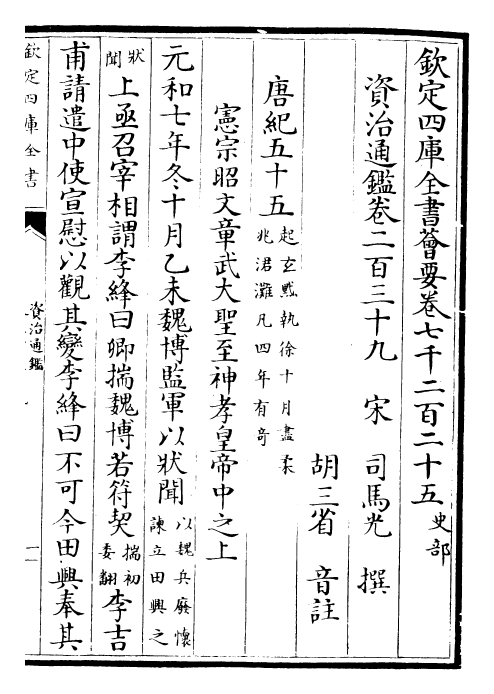 欽定四庫全書薈要卷七千二百二十五 史部
資治通鑑卷二百三十九 宋 司馬光 撰
胡三省 音註
唐紀五十五 起玄黓執徐十月盡柔兆涒灘凡四年有奇
憲宗昭文章武大聖至神孝皇帝中之上
元和七年冬十月乙未魏博監軍以狀聞 以魏兵廢懷諫立田興之
狀聞 上亟召宰相謂李絳曰卿揣魏博若符契 揣初委翻 李吉
甫請遣中使宣慰以觀其變李絳曰不可今田興奉其
欽定四庫全書
資治通鑑
一